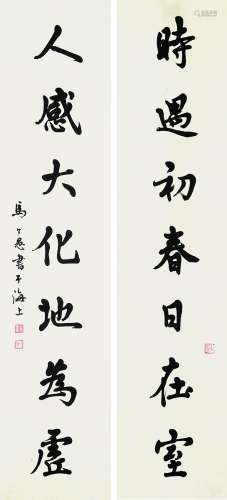 時遇初春日在室
人感大化地為虛
馬公愚書于海上